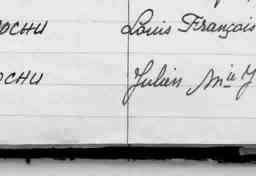 OCHU Louis François
OCHU Julien Mie J